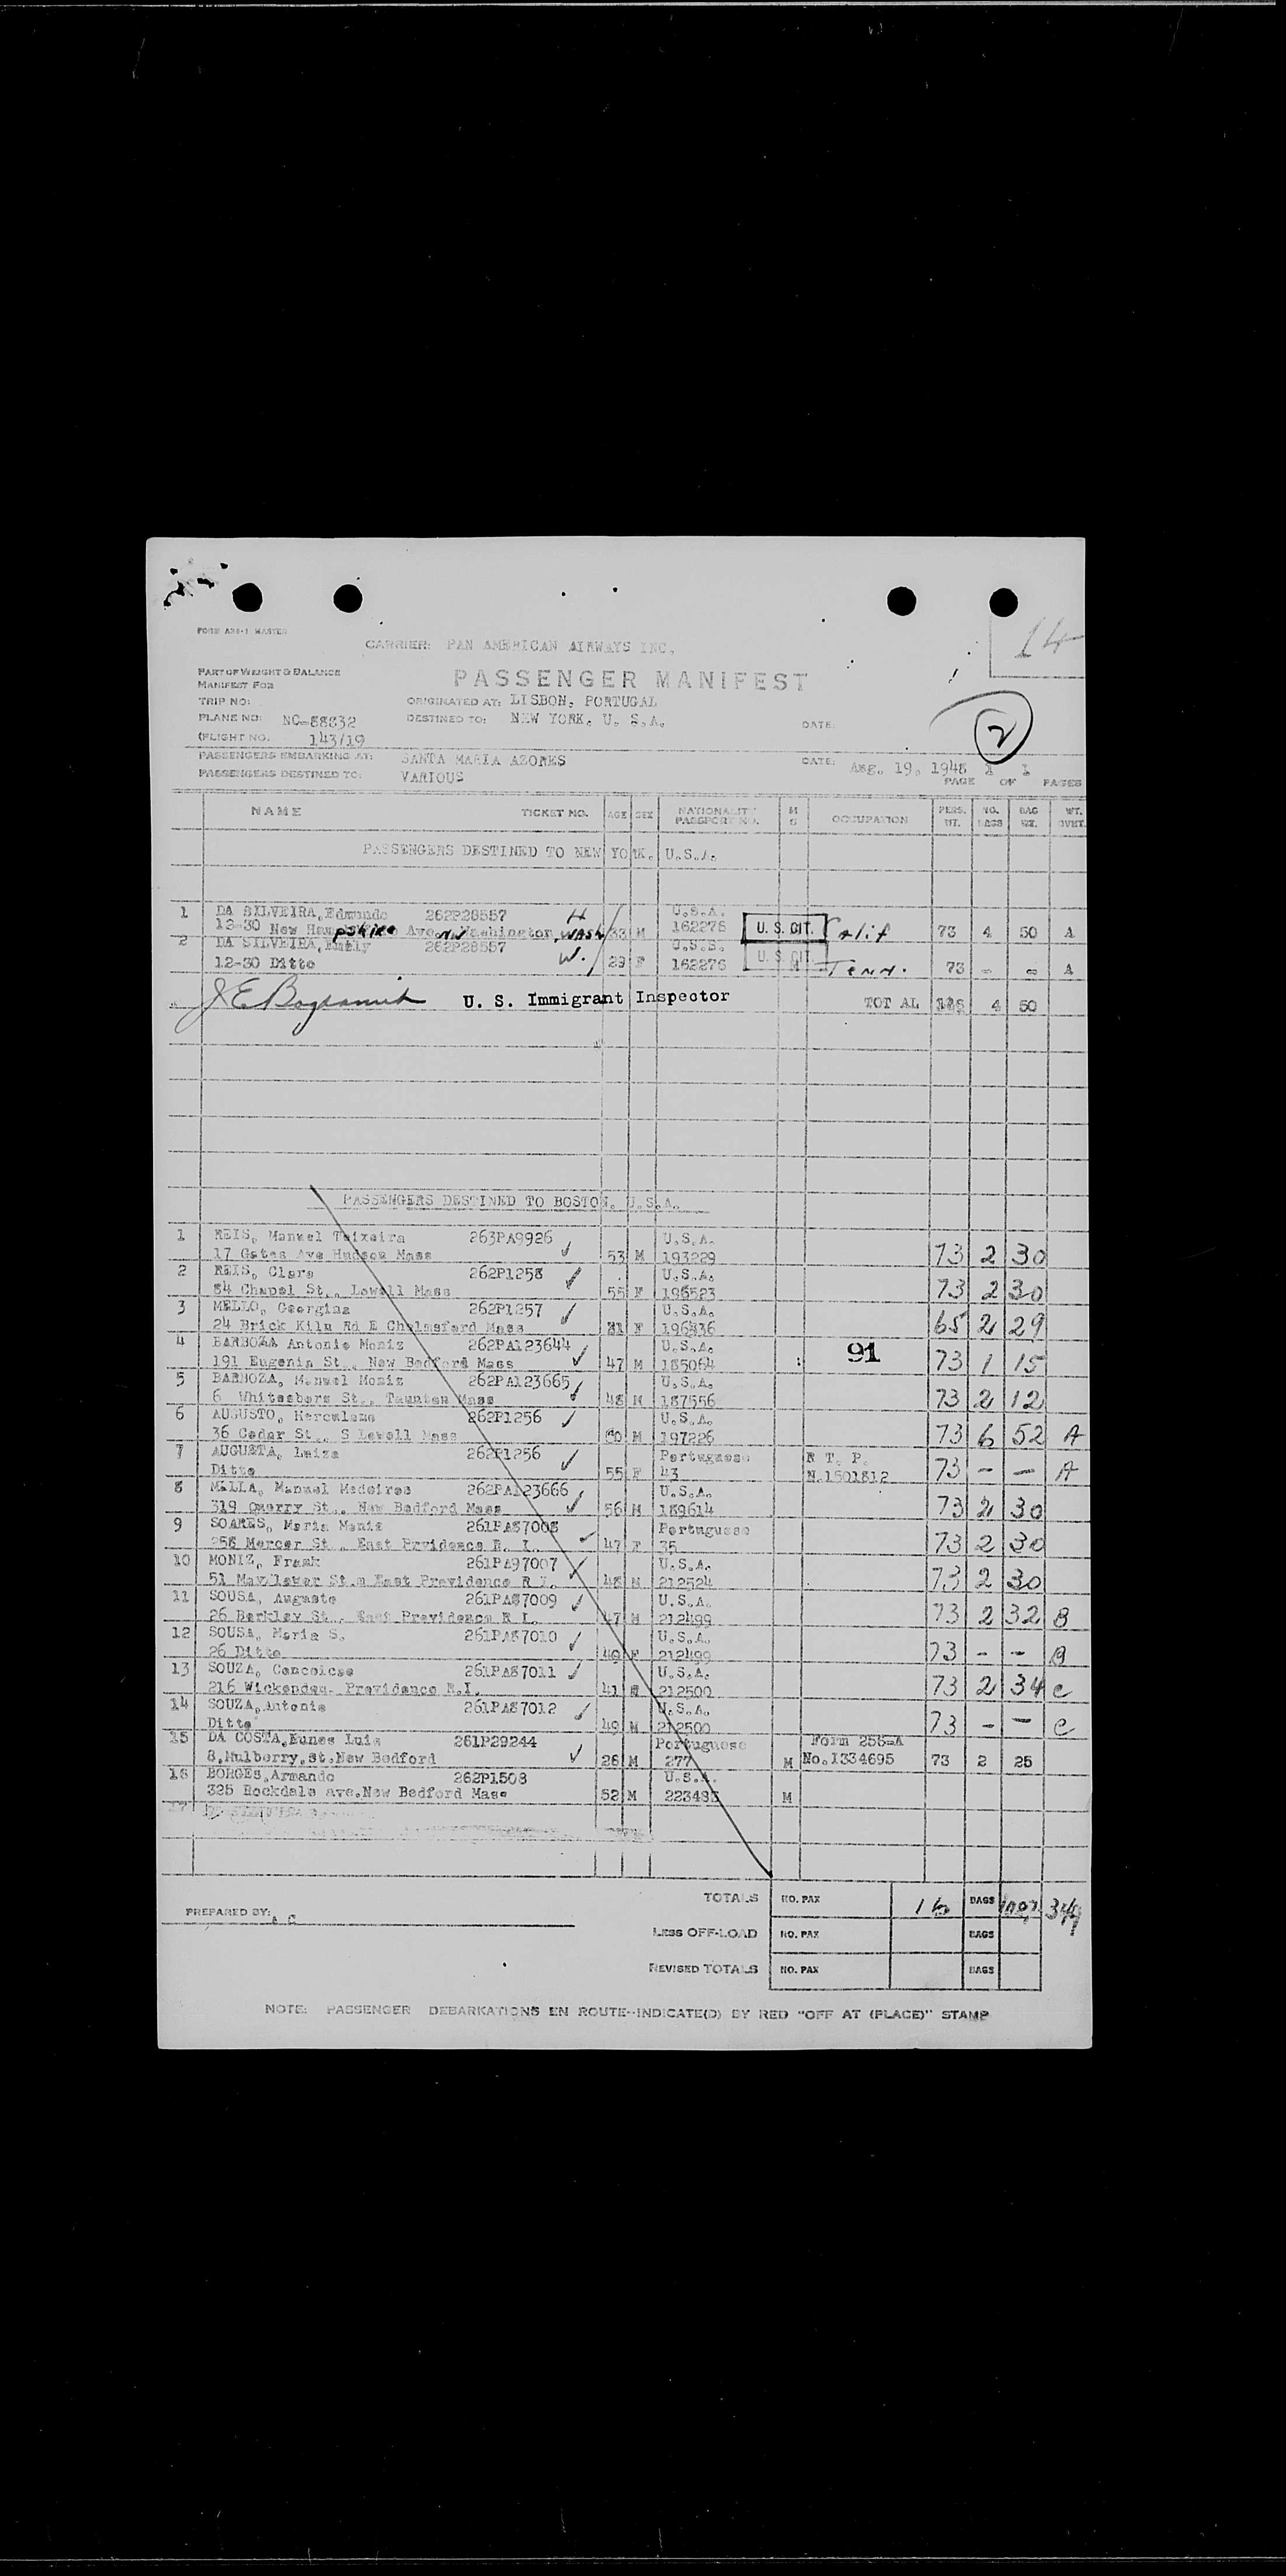 14
FORM A38-1 MASTER
CARRIER: PAN AMERICAN AIRWAYS INC.
PART OF WEIGHT & BALANCE
MANIFEST FOR
PASSENGER MANIFEST
TRIP NO:
ORIGINATED AT: LISBON, PORTUGAL
PLANE NO: NC-88832
DESTINED TO: NEW YORK, U. S.A.
DATE:
2
(FLIGHT NO. 143/19
PASSENGERS EMBARKING AT: SANTA MARIA AZORES
DATE: Aug. 19, 1948 1 1
PASSENGERS DESTINED TO: VARIOUS
PAGE OF PAGES
NAME TICKET NO. AGE SEX NATIONALITY PASSPORT NO. M S OCCUPATION PERS. WT. NO. BAGS BAG WT. WT. OVHT.
PASSENGERS DESTINED TO NEW YORK. U.S.A.
1 DA SILVEIRA, Edmundo 262P28557 H U.S.A.
12-30 New Hampshire Ave NW Washington WASH 33 M 162276 U. S. CIT. Calif 73 4 50 A
2 DA SILVEIRA, Emily 262P28557 W. U.S.S.
12-30 Ditto 29 F 162276 U. S. CIT. M Tenn. 73 - - A
U. S. Immigrant Inspector TOT AL 4 50
PASSENGERS DESTINED TO BOSTON. U.S.A.
1 REIS, Manuel Teixeira 263PA9926 U.S.A.
17 Gates Ave Hudson Mass 53 M 193229 73 2 30
2 REIS, Clara 262P1258 U.S.A.
84 Chapel St., Lowell Mass 55 F 196523 73 2 30
3 MELLO, Georgina 262P1257 U.S.A.
24 Brick Kiln Rd E Chelmsford Mass F 196836 65 2 29
4 BARBOZA Antonio Moniz 262PA123644 U.S.A. 91
191 Eugenia St., New Bedford Mass 47 M 185064 73 1 15
5 BARBOZA, Manuel Moniz 262PA123665 U.S.A.
6 Whitesboro St., Taunton Mass 48 M 187556 73 2 12
6 AUGUSTO, Herculano 262P1256 U.S.A.
36 Cedar St., S Lowell Mass 60 M 197226 73 6 52 A
7 AUGUSTA, Luiza 262P1256 Portuguese R T. P.
Ditto 55 F 43 N.1501812 73 - - A
8 MILLA, Manuel Medeiros 262PA123666 U.S.A.
319 Quarry St., New Bedford Mass 56 M 189614 73 2 30
9 SOARES, Maria Moniz 261PA87008 Portuguese
258 Mercer St., East Providence R. I. 47 F 35 73 2 30
10 MONIZ, Frank 261PA97007 U.S.A.
51 Mayflower St.m East Providence R I. 48 M 212524 73 2 30
11 SOUSA, Augusto 261PA87009 U.S.A.
26 Berkley St., East Providence R I. 47 M 212499 73 2 32 B
12 SOUSA, Maria S. 261PA87010 U.S.A.
26 Ditto 49 F 212499 73 - - B
13 SOUZA, Conceicao 261PA87011 U.S.A.
216 Wickenden. Providence R.I. 41 212500 73 2 34 C
14 SOUZA, Antonio 261PA87012 U.S.A.
Ditto 49 M 212500 73 - - C
15 DA COSTA, Nunes Luis 261P29244 Portuguese Form 258-A
8, Mulberry, st. New Bedford 26 M 277 M No.1334695 73 2 25
16 BORGES, Armando 262P1508 U.S.A.
325 Rockdale ave. New Bedford Mass 52 M 223483 M
17
TOTALS NO. PAX 16 BAGS
PREPARED BY: A C
LESS OFF-LOAD NO. PAX BAGS
REVISED TOTALS NO. PAX BAGS
NOTE: PASSENGER DEBARKATIONS EN ROUTE--INDICATE(D) BY RED "OFF AT (PLACE)" STAMP